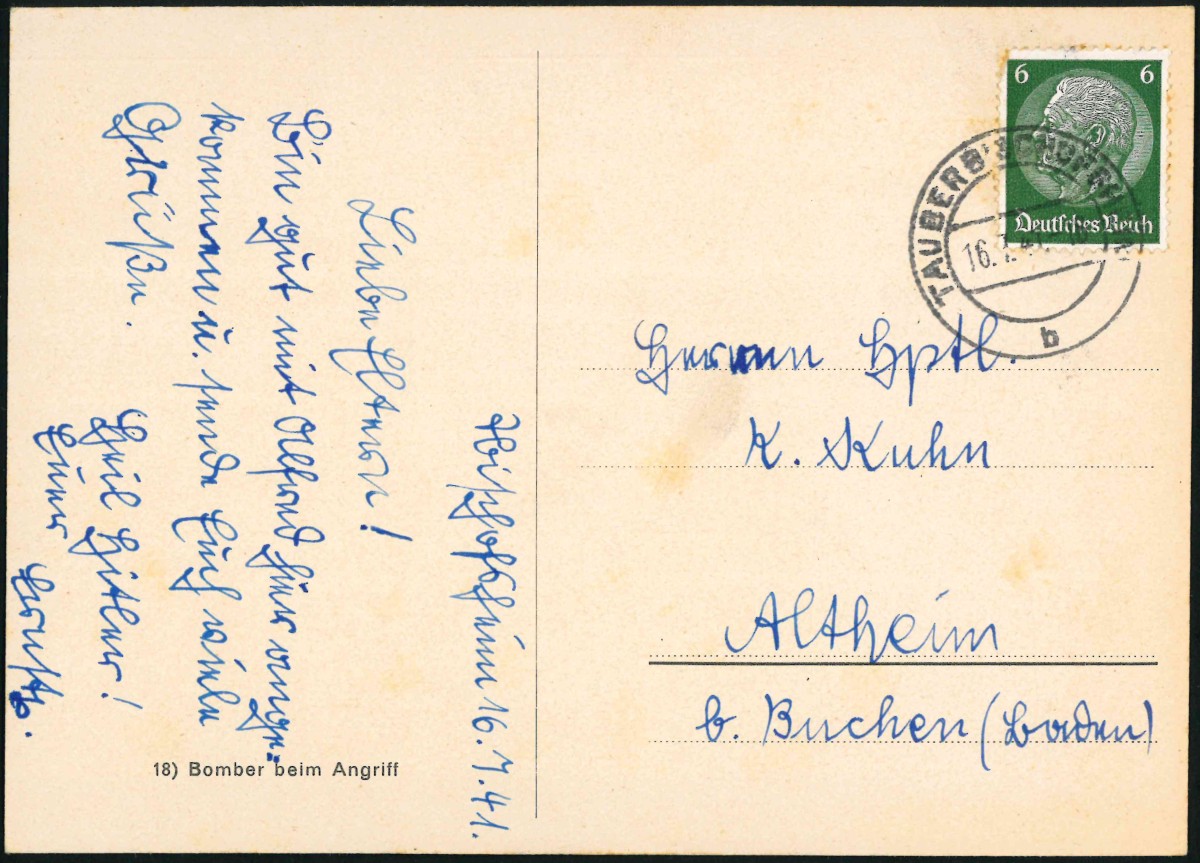 Bischofsheim 16.7.41.
Liebe Eltern!
Bin gut mit Alfred hier ange=
kommen u. sende Euch viele
Grüße.
Heil Hitler!
Euer
18) Bomber beim Angriff
6 6
Deutsches Reich
TAUBERBISCHOFSHEIM
16.7.41
b
Herrn Hptl.
K. Kuhn
Altheim
b. Buchen (Baden)